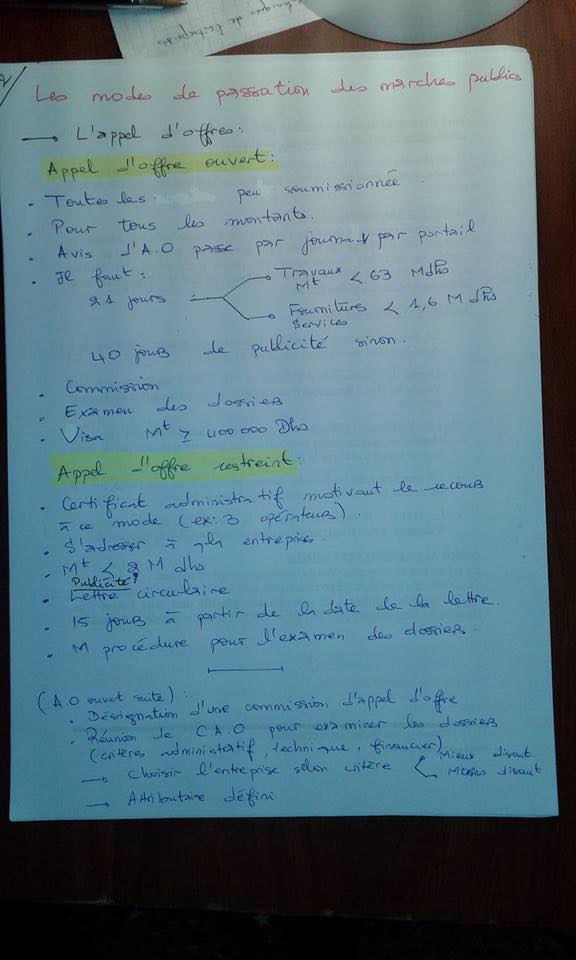 Les modes de passation des marches publics
→ L'appel d'offres:
Appel d'offre ouvert:
• Toutes les peu soumissionnée.
• Pour tous les montants.
• Avis d'A.O passe par journaux par portail
• Il faut:
21 jours
Travaux Mt < 63 Mdhs
Fournitures Services < 1,6 M dhs
40 jours de publicité sinon.
• Commission
• Examen des dossiers
• Visa Mt ≥ 400 000 Dhs
Appel d'offre restreint:
• Certificat administratif motivant le recours
à ce mode (ex: 3 opérateurs).
• S'adresser à entreprises.
• Mt < 2 M dhs
Publicité
• Lettre circulaire
• 15 jours à partir de la date de la lettre.
• M procédure pour l'examen des dossiers.
(A.O ouvet suite):
• Désignation d'une commission d'appel d'offre
• Réunion de C A.O pour examiner les dossiers
(critères administratif, technique, financier)
→ Choisir l'entreprise selon critère < Mieux disant
Moins disant
→ Attributaire défini